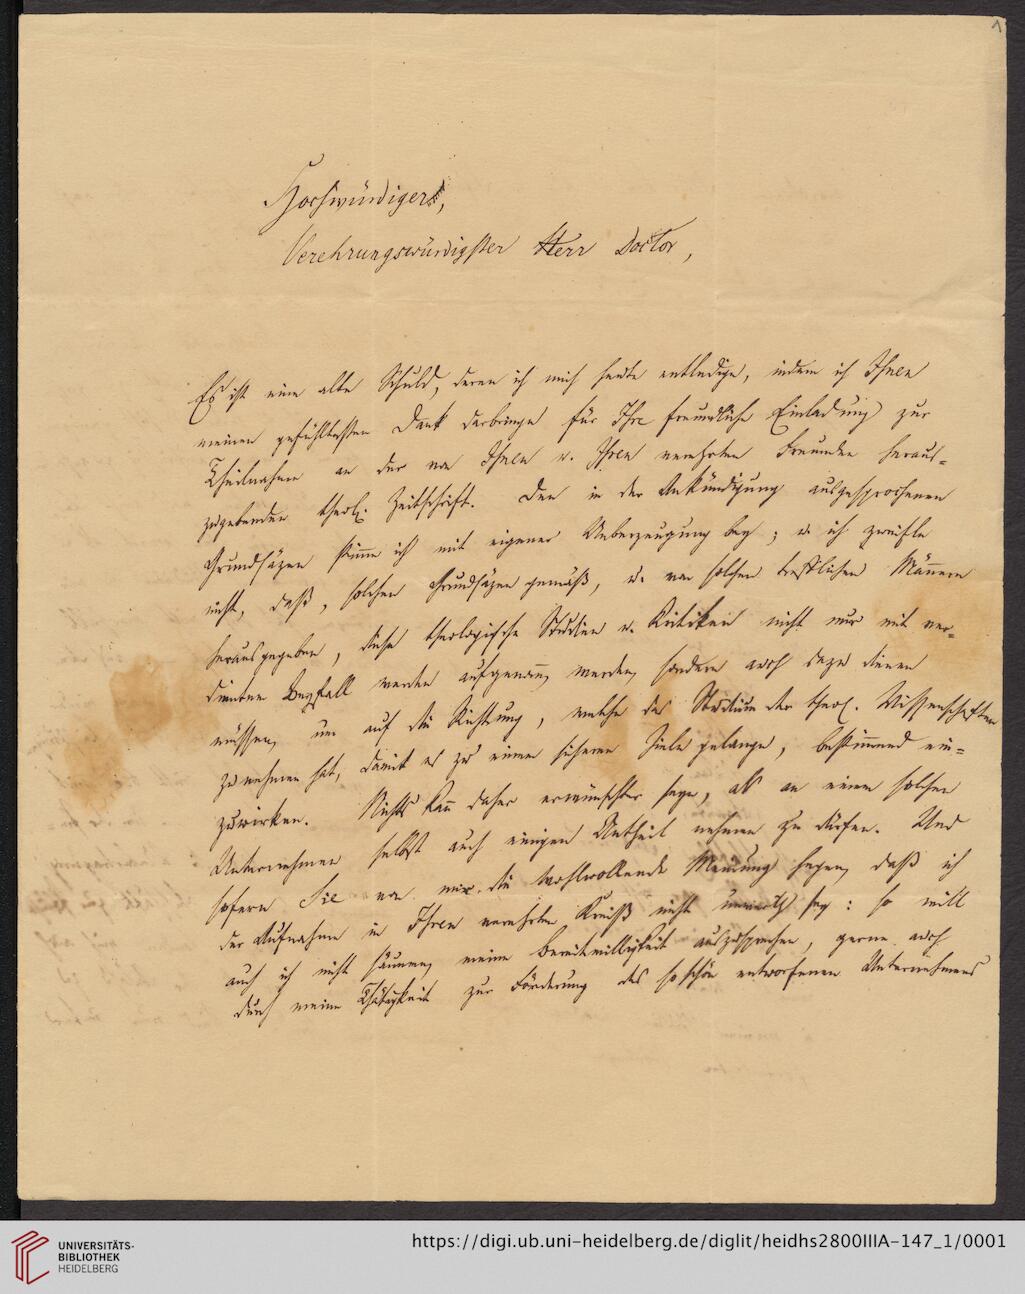 1
Hochwürdiger,
Verehrungswürdigster Herr Doctor,
Es ist eine alte Schuld, deren ich mich heute entledige, indem ich Ihnen
meinen gefühltesten Dank darbringe für Ihre freundliche Einladung zur
Theilnahme an der von Ihnen u. Ihren verehrten Freunden heraus-
zugebenden theol. Zeitschrift. Den in der Ankündigung ausgesprochenen
Grundsäzen stimme ich mit eigener Ueberzeugung bey; u. ich zweifle
nicht, daß, solchen Grundsäzen gemäß, u. von solchen trefflichen Männern
herausgegeben, diese theologische Studien u. Kritiken nicht nur mit ver-
dientem Beyfall werden aufgenom̄en werden, sondern auch dazu dienen
müssen, um auf die Richtung, welche das Studium der theol. Wissenschaften
zu nehmen hat, damit es zu einem sicheren Ziele gelange, bestimmend ein-
zuwirken. Nichts kan̄ daher erwünschter seyn, als an einem solchen
Unternehmen selbst auch einigen Antheil nehmen zu dürfen. Und
sofern Sie von mir die wohlwollende Meinung hegen, daß ich
der Aufnahme in Ihren verehrten Kreiß nicht unwerth sey: so will
auch ich nicht säumen, meine Bereitwilligkeit auszusprechen, gerne auch
durch meine Thätigkeit zur Förderung des so schön entworfenen Unternehmens
UNIVERSITÄTS-
BIBLIOTHEK
HEIDELBERG
https://digi.ub.uni-heidelberg.de/diglit/heidhs2800IIIA-147_1/0001